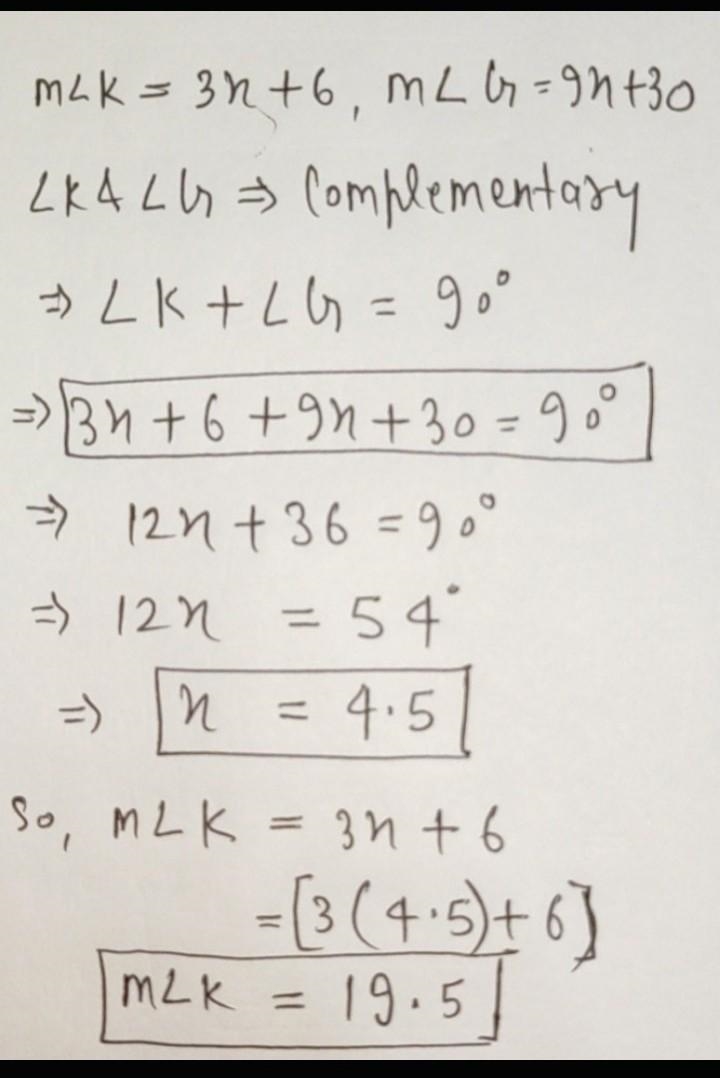 m∠K = 3x + 6, m∠G = 9x+30
∠K & ∠G ⇒ Complementary
⇒ ∠K + ∠G = 90°
⇒ 3x + 6 + 9x + 30 = 90°
⇒ 12x + 36 = 90°
⇒ 12x = 54°
⇒ x = 4.5
So, m∠K = 3x + 6
= [3(4.5) + 6]
m∠K = 19.5